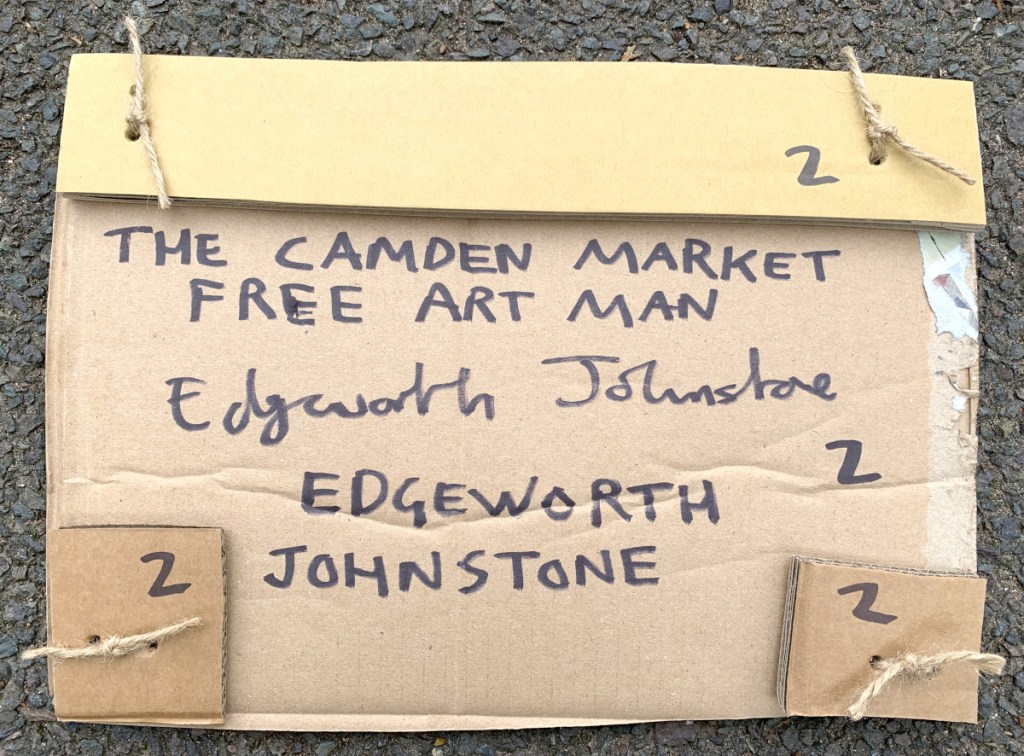 2
THE CAMDEN MARKET
FREE ART MAN
Edgeworth Johnstone
2
EDGEWORTH
JOHNSTONE
2
2